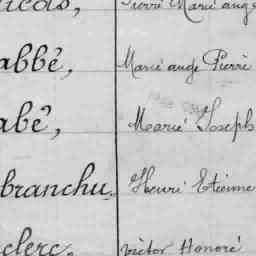 Pierre Marie ange
abbé, Marie ange Pierre
abé, Mearie Joseph
branchu, Henri Etienne
clerc, victor Honoré